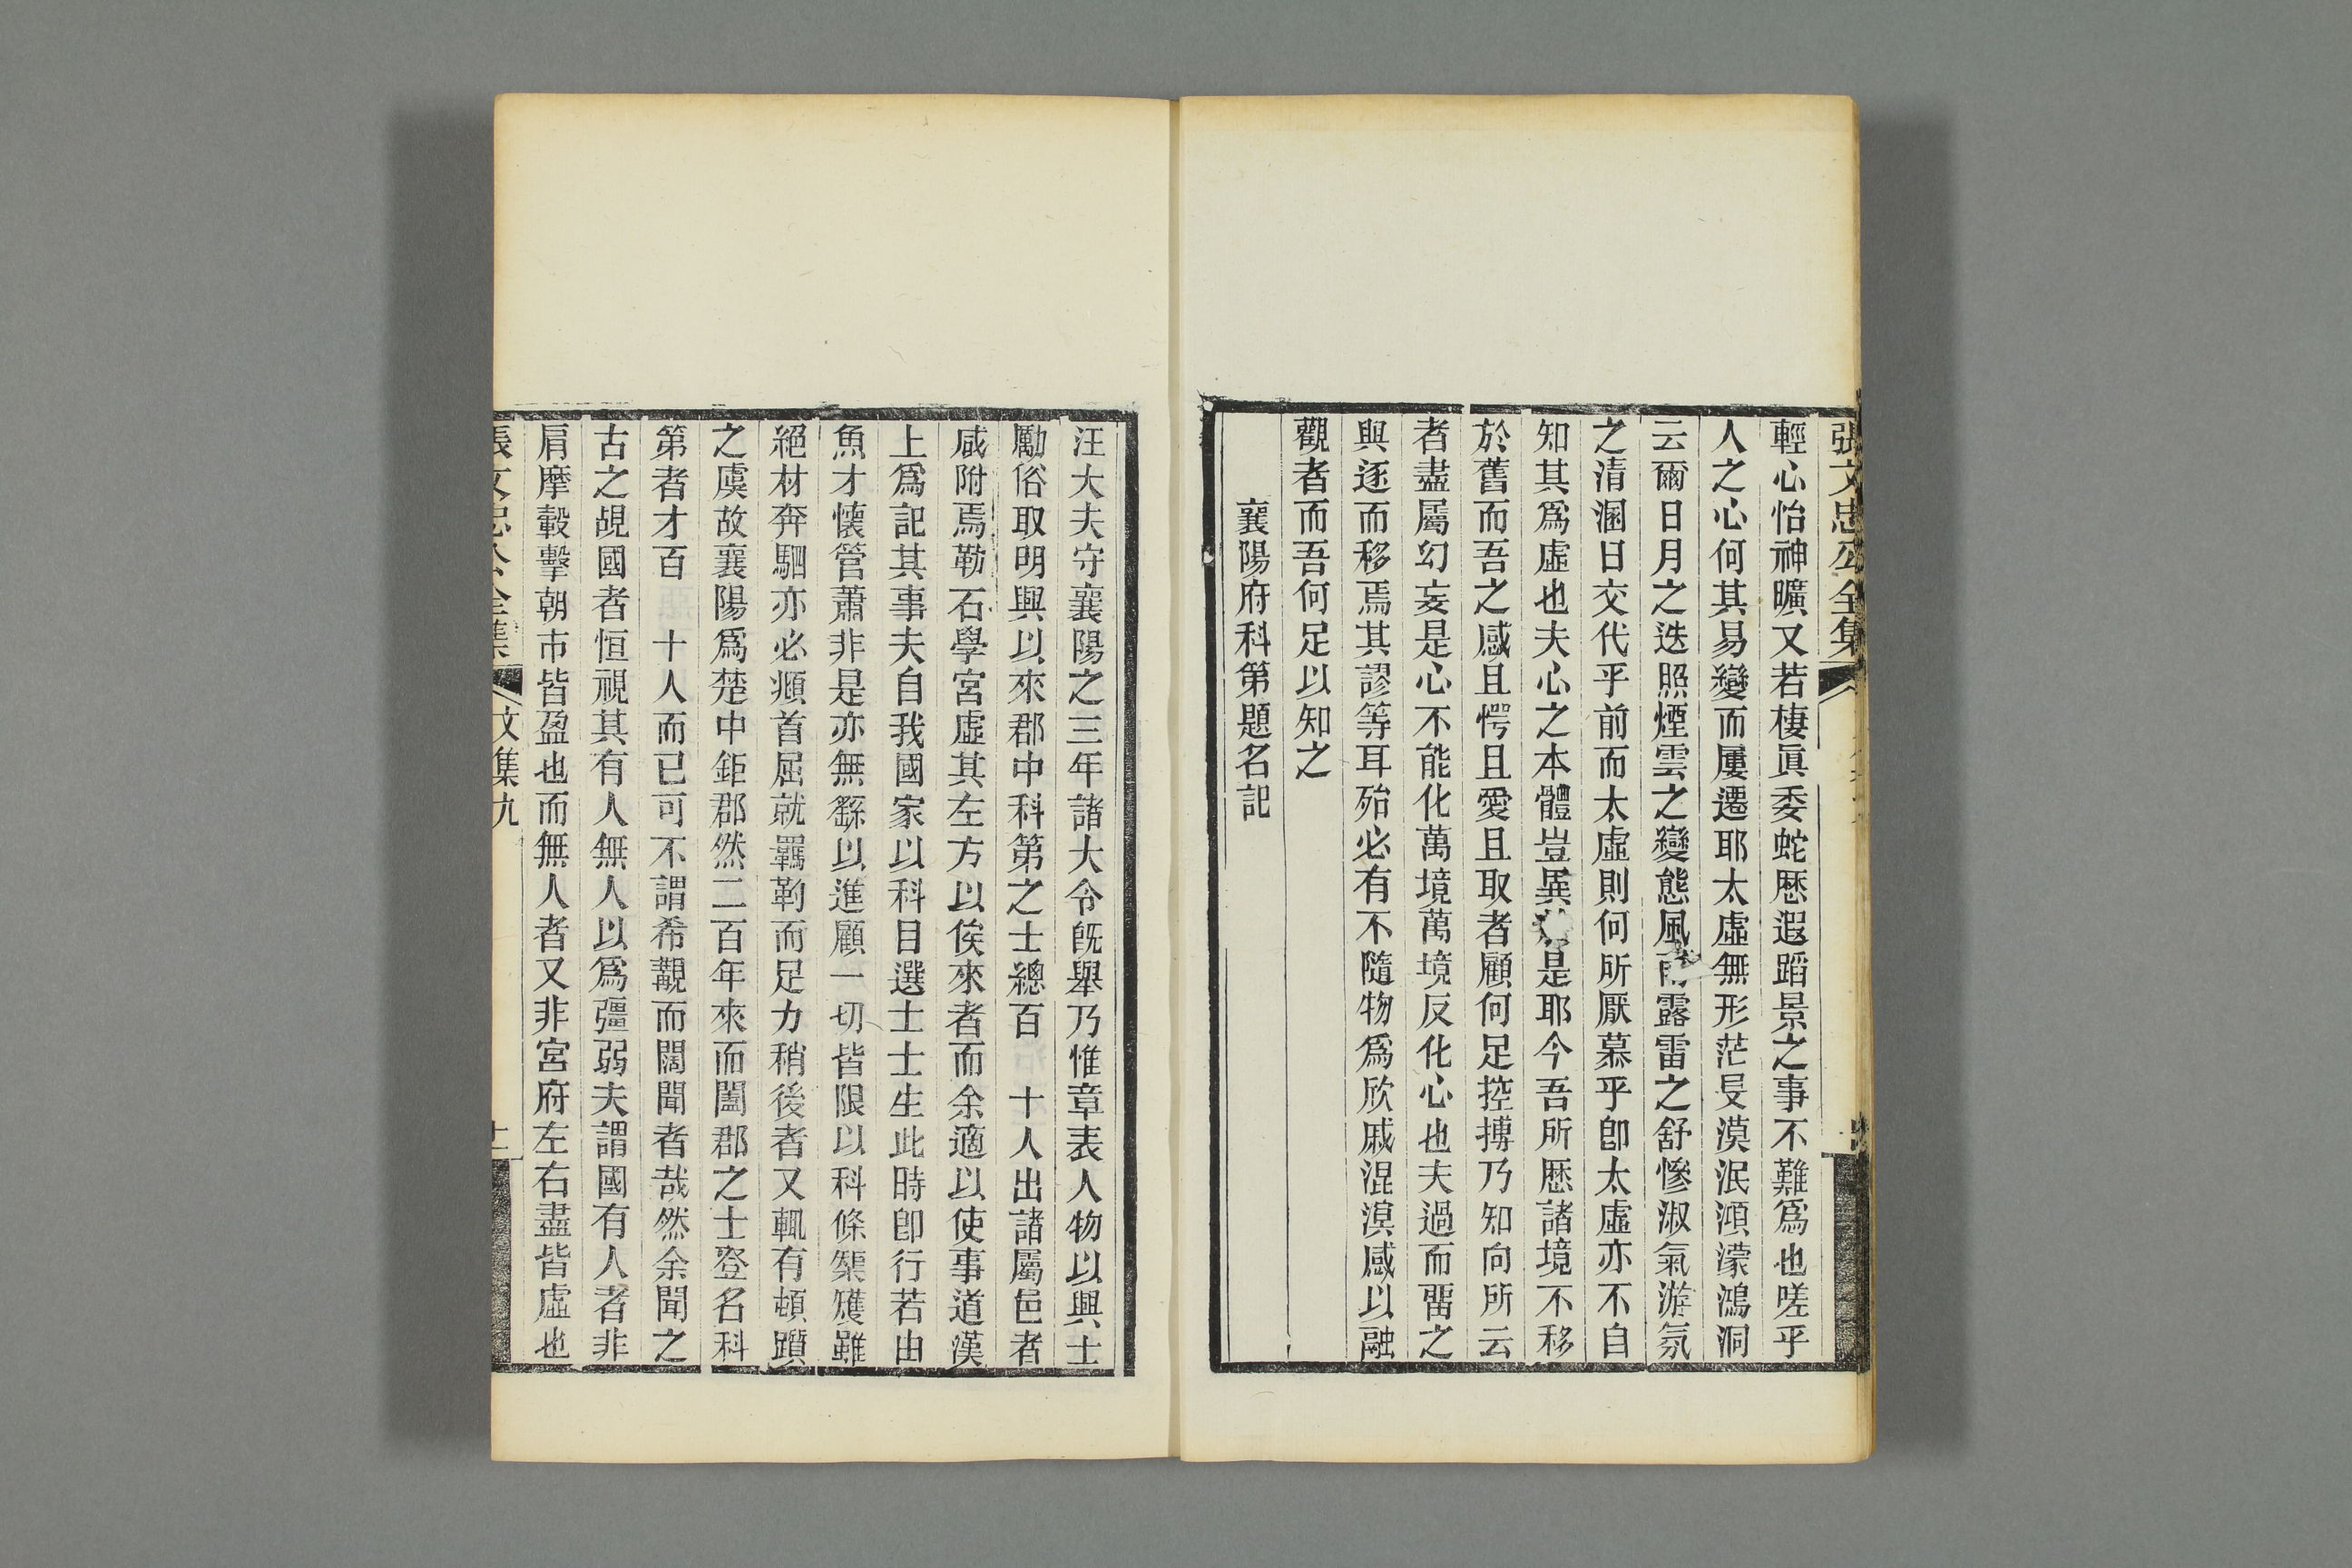 張文忠公全集
輕心怡神曠又若棲眞委蛇歷遐蹈景之事不難爲也嗟乎
人之心何其易變而屢遷耶太虛無形茫旻漠泯澒濛鴻洞
云爾日月之迭照煙雲之變態風雨露雷之舒慘淑氣游氛
之清溷日交代乎前而太虛則何所厭慕乎卽太虛亦不自
知其爲虛也夫心之本體豈異是耶今吾所歷諸境不移
於舊而吾之感且愕且愛且取者顧何足控摶乃知向所云
者盡屬幻妄是心不能化萬境萬境反化心也夫過而畱之
與逐而移焉其謬等耳殆必有不隨物爲欣戚混漠感以融
觀者而吾何足以知之
襄陽府科第題名記
汪大夫守襄陽之三年諸大令旣舉乃惟章表人物以興士
勵俗取明興以來郡中科第之士總百　十人出諸屬邑者
咸附焉勒石學宮虛其左方以俟來者而余適以使事道漢
上爲記其事夫自我國家以科目選士士生此時卽行若由
魚才懷管蕭非是亦無繇以進顧一切皆限以科條榘矱雖
絕材奔駟亦必頫首屈就羈靮而足力稍後者又輒有頓躓
之虞故襄陽爲楚中鉅郡然二百年來而闔郡之士登名科
第者才百　十人而已可不謂希覯而闊聞者哉然余聞之
古之覘國者恒視其有人無人以爲彊弱夫謂國有人者非
肩摩轂擊朝市皆盈也而無人者又非宮府左右盡皆虛也
張文忠公全集 文集九